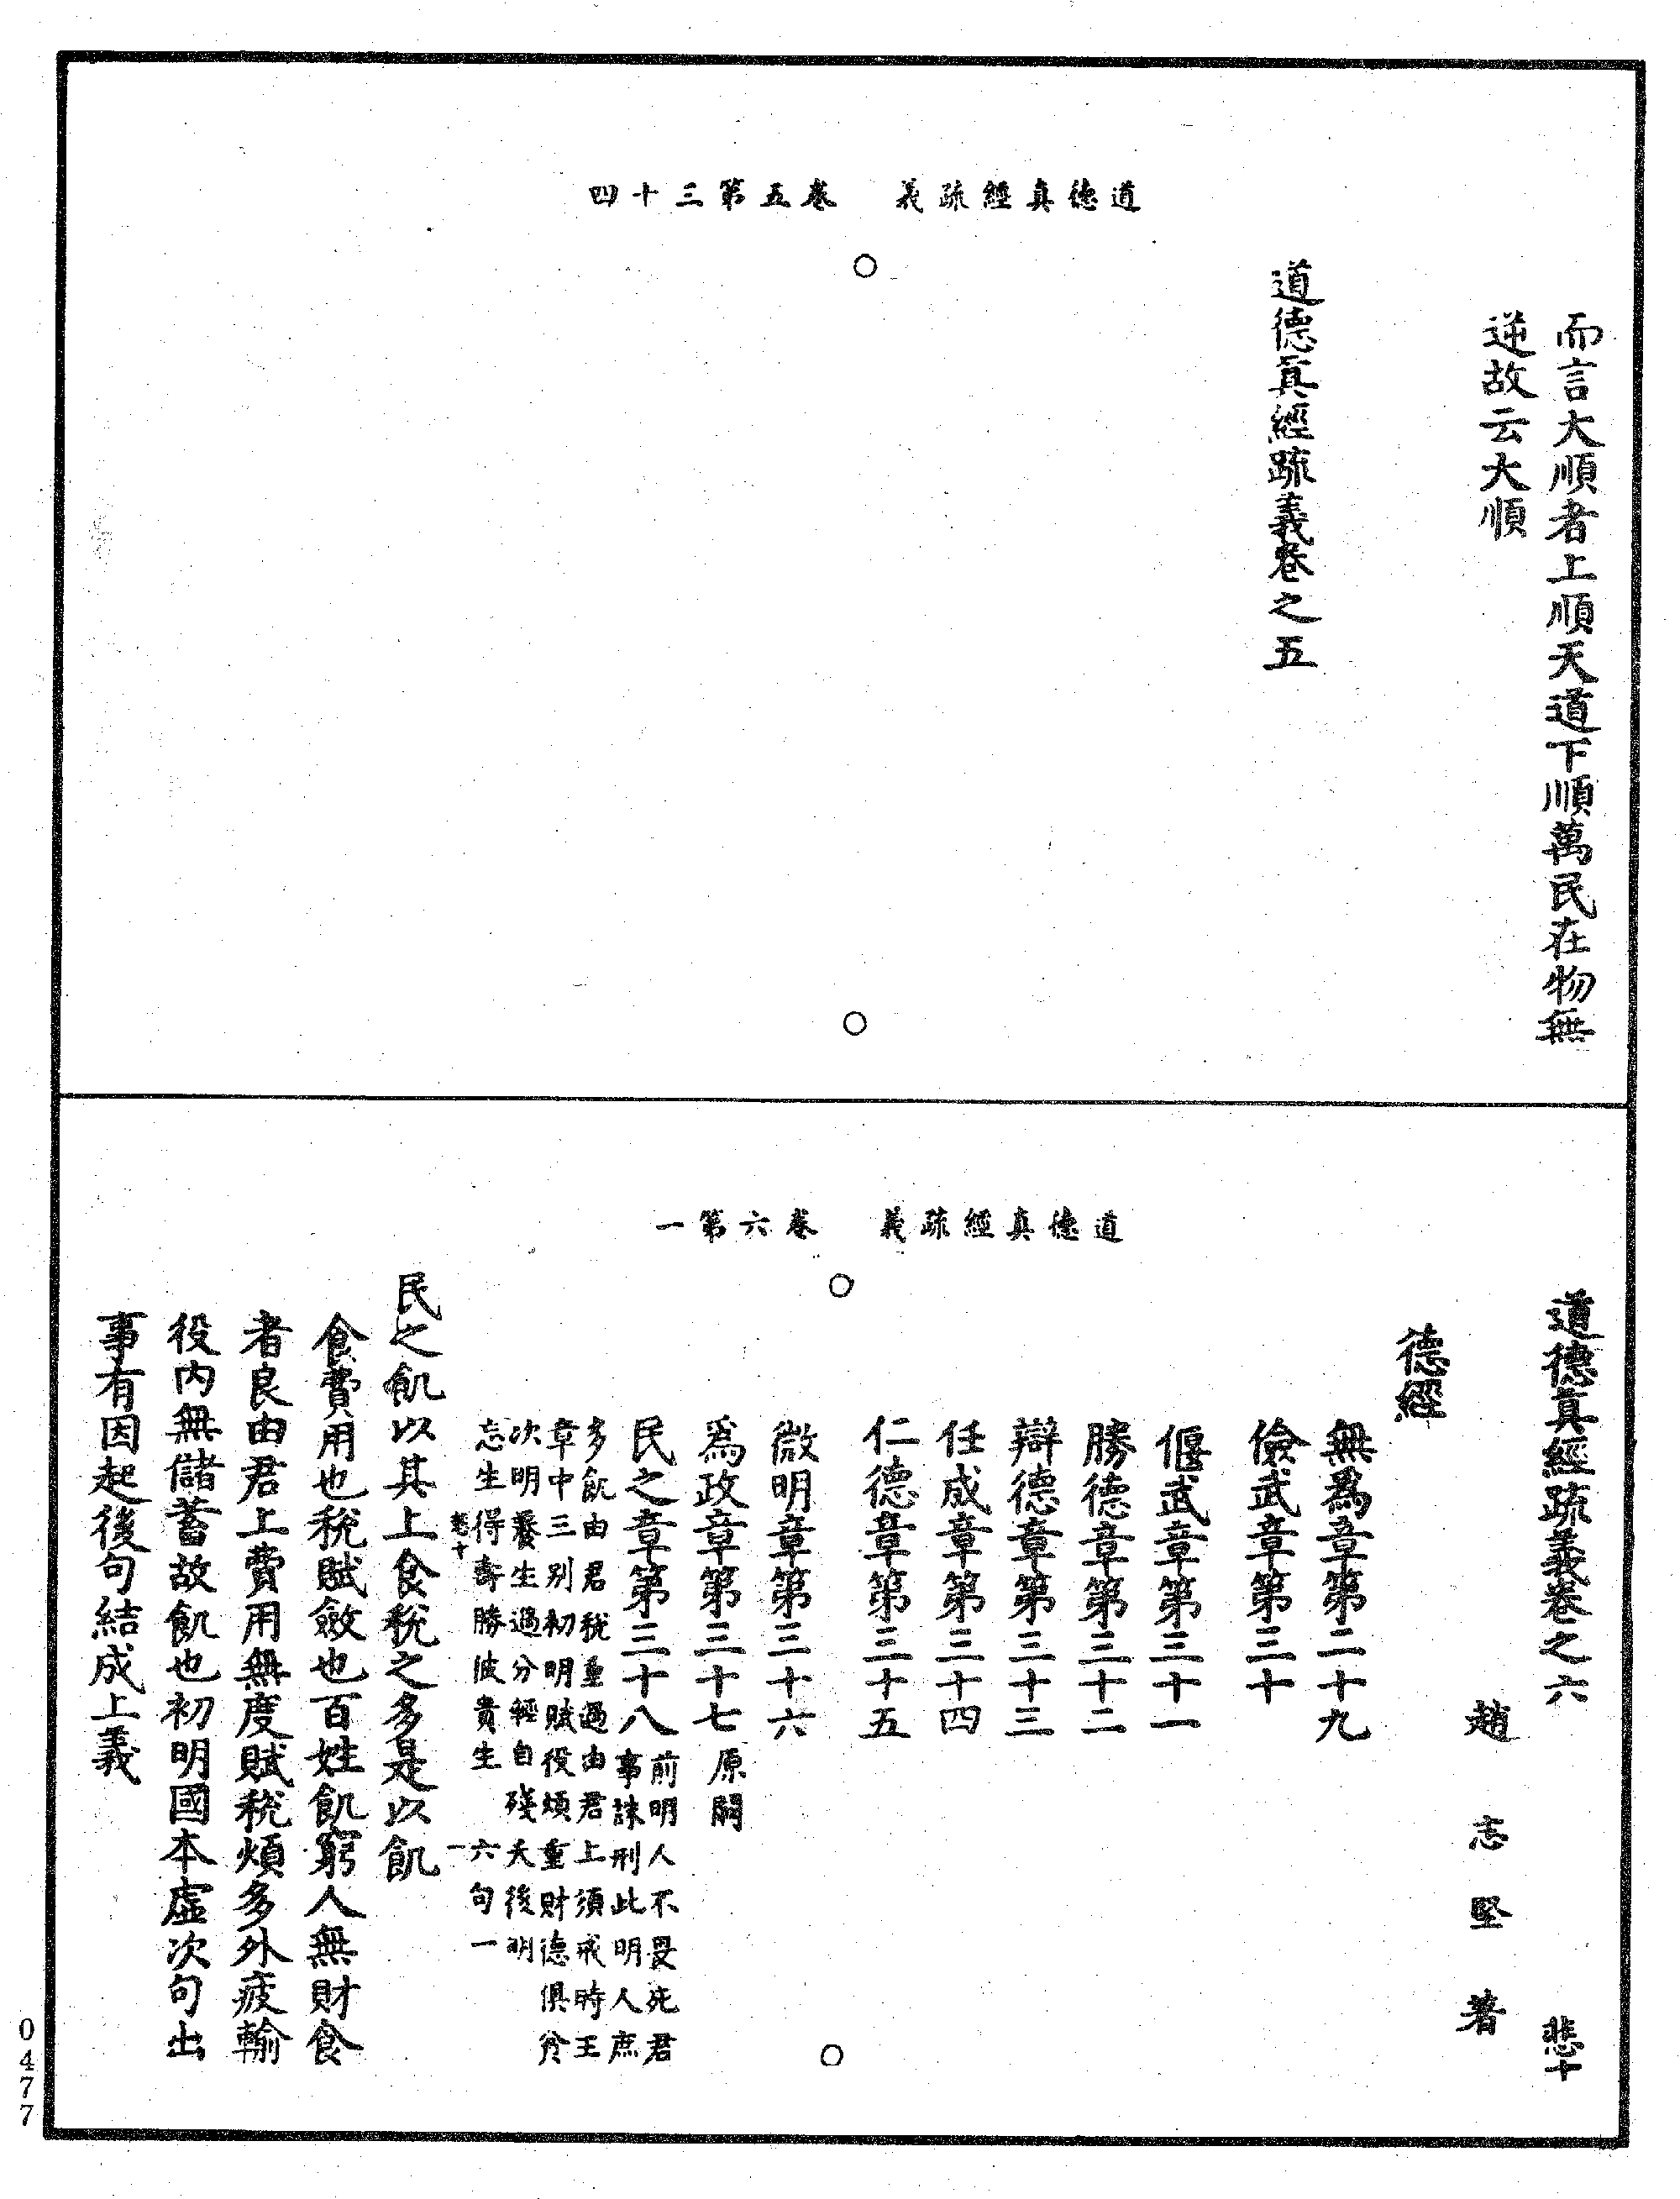 道德真經疏義　卷五第三十四
而言大順者上順天道下順萬民在物無
逆故云大順
道德真經疏義卷之五
道德真經疏義　卷六第一
道德真經疏義卷之六　悲十
趙志堅著
德經
無爲章第二十九
儉武章第三十
偃武章第三十一
勝德章第三十二
辯德章第三十三
任成章第三十四
仁德章第三十五
微明章第三十六
爲政章第三十七原闕
民之章第三十八前明人不畏死君
事誅刑此明人庶
多飢由君稅重過由君上須戒時王
章中三別初明賦役煩重財德俱貧
次明養生過分輕自殘夭後明
忘生得壽勝彼貴生　六句一
悲十　一
民之飢以其上食稅之多是以飢
食費用也稅賦斂也百姓飢窮人無財食
者良由君上費用無度賦稅煩多外疲輸
役內無儲蓄故飢也初明國本虛次句出
事有因起後句結成上義
0477